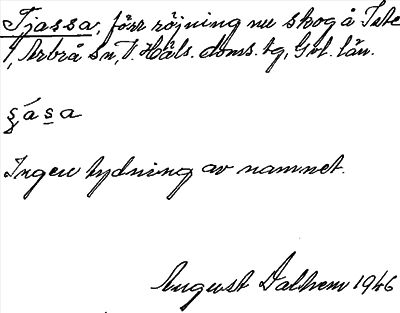 Tjassa, förr röjning nu skog å Tåte
1, Arbrå sn, V. Häls. doms. tg, Gvl. län.
ʂása
Ingen tydning av namnet.
August Dalhem 1946